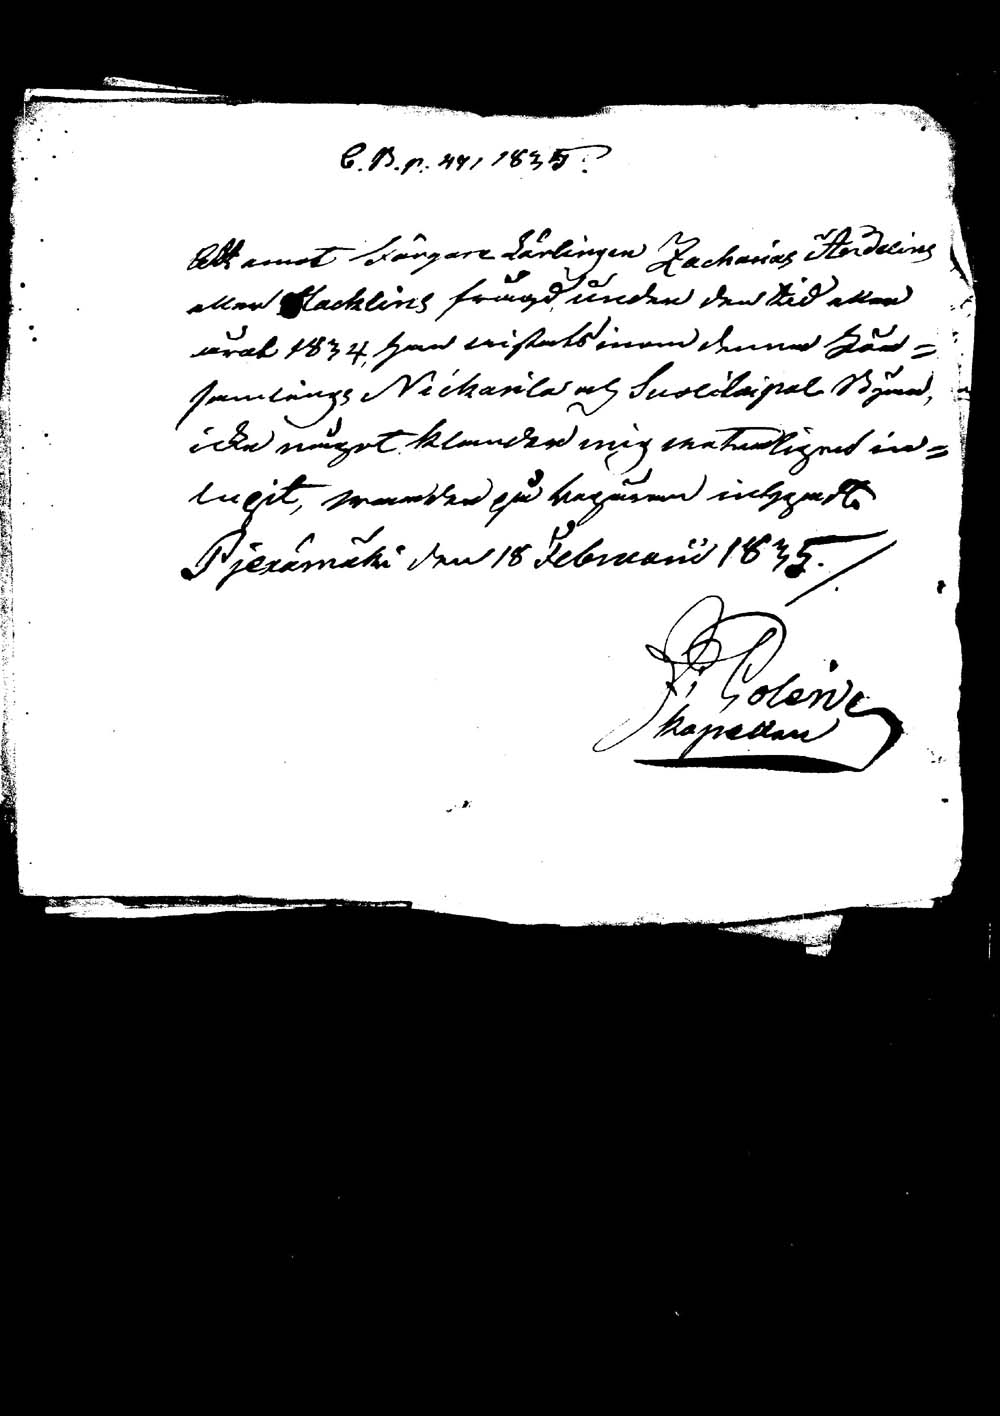 C. B. p. 441 1835.
Att emot Färgare Lärlingen Zacharias
eller Macklins frägd, under den tid eller
året 1834, han vistats inom denna För=
samlings Nickarila och Suolilaipal Byar,
icke något klander mig vetterligned in=
lupit, warder på begäran intygadt
Pjexämäki den 18 Februarii 1835.
Kapellan